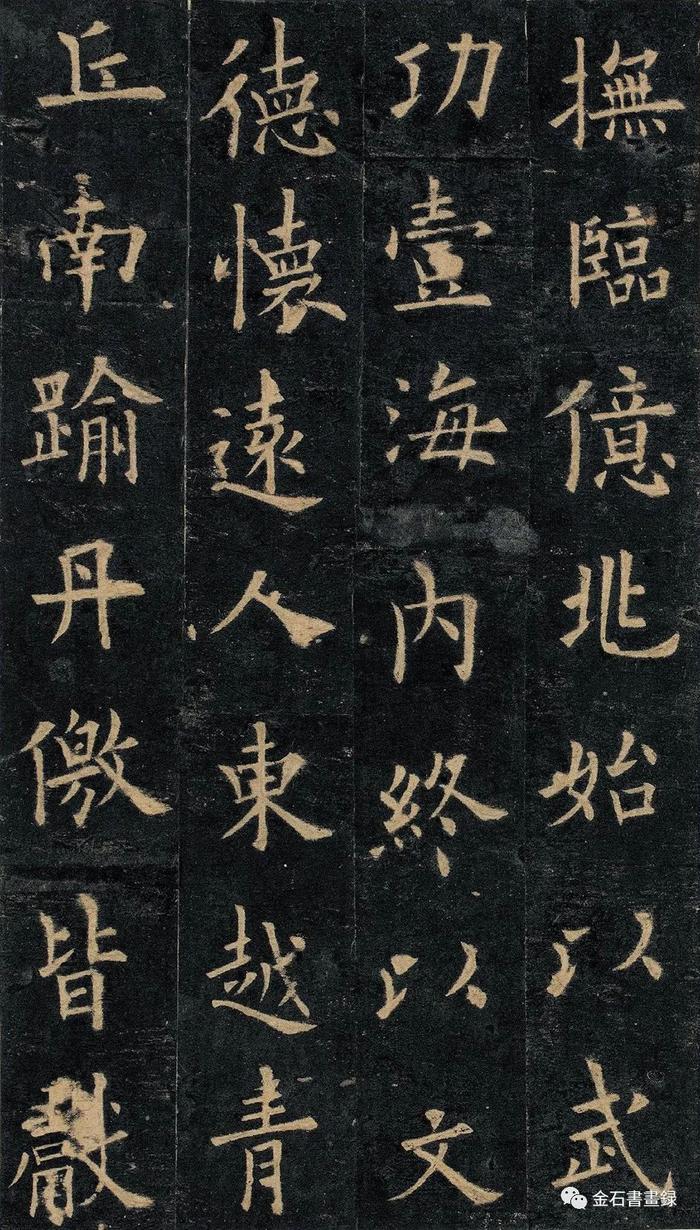 撫臨億兆始以武
功壹海内終以文
德懷遠人東越青
丘南踰丹徼皆獻
金石書畫録